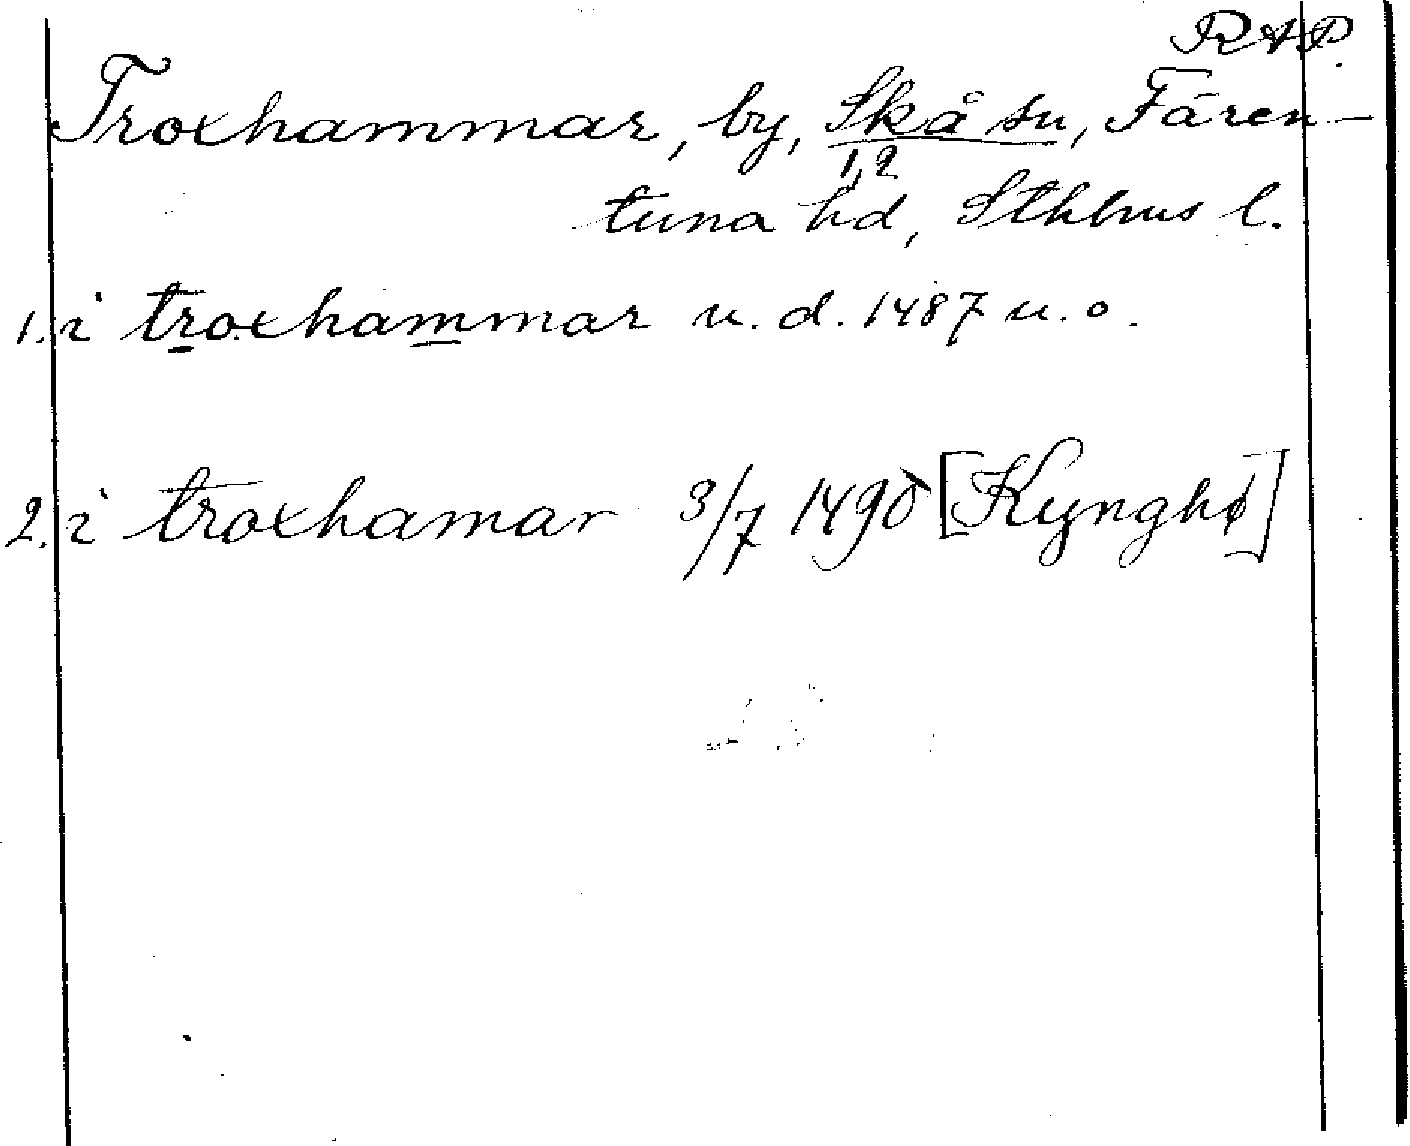 RAP.
Troxhammar, by, Skå sn, Fären-
1,2
tuna hd, Sthlms l.
1. i troxhammar u. d. 1487 u. o.
2. i troxhamar 3/7 1490 [Kynghø]